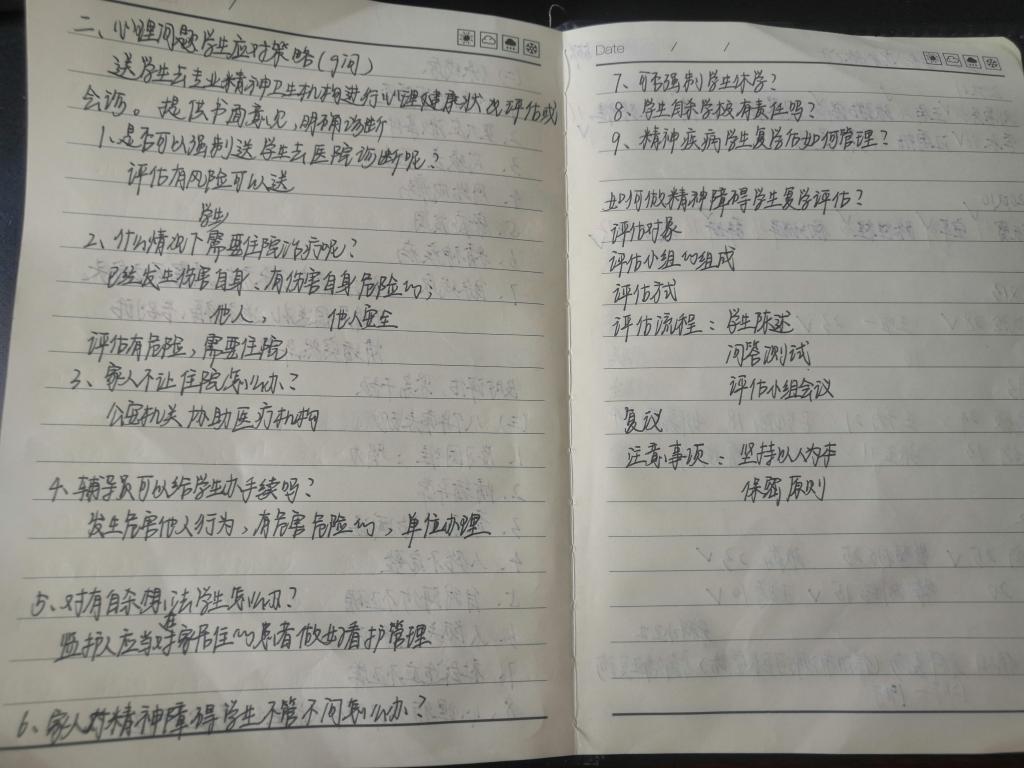 二、心理问题学生应对策略(9问)
送学生去专业精神卫生机构进行心理健康状况评估或
会诊。提供书面意见,明确诊断
1、是否可以强制送学生去医院诊断呢?
评估有风险可以送
学生
2、什么情况下需要住院治疗呢?
已经发生伤害自身、有伤害自身危险的;
他人, 他人安全
评估有危险,需要住院
3、家人不让住院怎么办?
公安机关协助医疗机构
4、辅导员可以给学生办手续吗?
发生危害他人行为,有危害危险的,单位办理
5、对有自杀想法学生怎么办?
监护人应当对在家居住的患者做好看护管理
6、家人对精神障碍学生不管不问怎么办?
Date / /
7、可否强制学生休学?
8、学生自杀学校有责任吗?
9、精神疾病学生复学后如何管理?
如何做精神障碍学生复学评估?
评估对象
评估小组的组成
评估方式
评估流程:学生陈述
问答测试
评估小组会议
复议
注意事项:坚持以人为本
保密原则